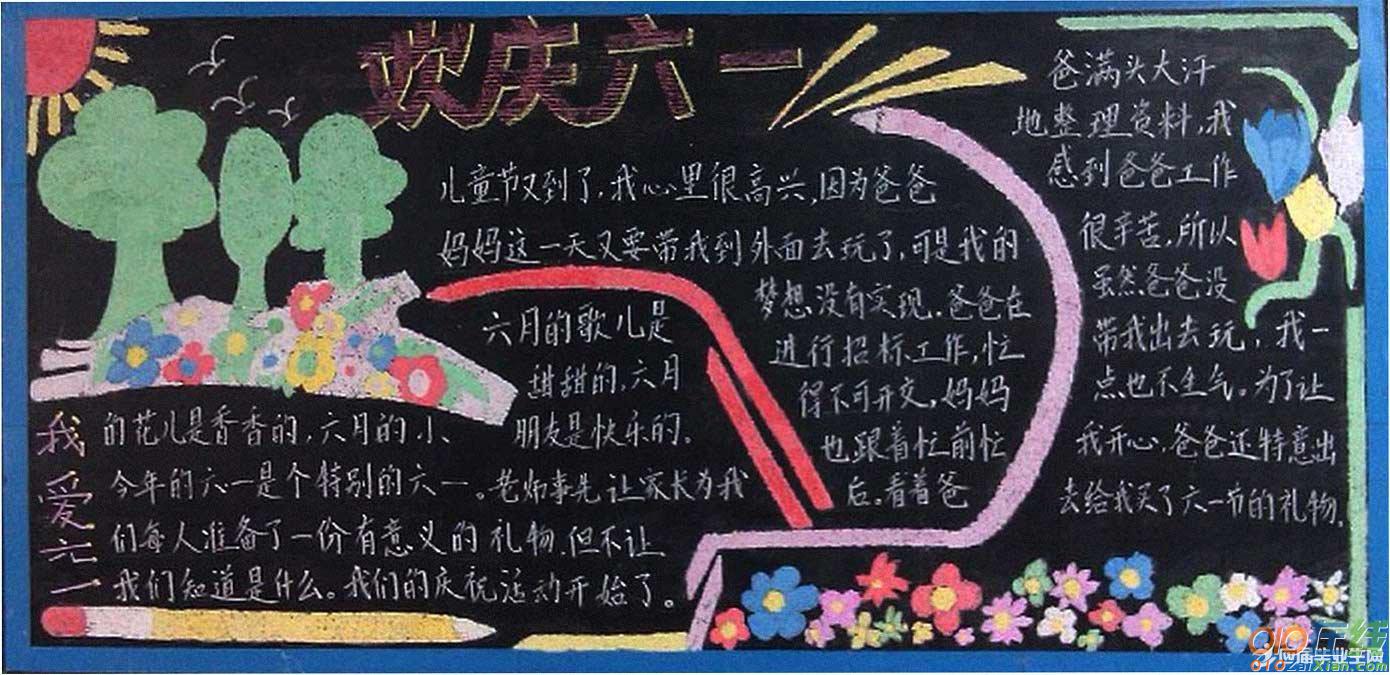 欢庆六一
儿童节又到了,我心里很高兴,因为爸爸
妈妈这一天又要带我到外面去玩了,可是我的
梦想没有实现.爸爸在
进行招标工作,忙
得不可开交,妈妈
也跟着忙前忙
后。看着爸
爸满头大汗
地整理资料,我
感到爸爸工作
很辛苦,所以
虽然爸爸没
带我出去玩,我一
点也不生气。为了让
我开心,爸爸还特意出
去给我买了六一节的礼物.
我爱六一
六月的歌儿是
甜甜的,六月
的花儿是香香的,六月的小
朋友是快乐的。
今年的六一是个特别的六一。老师事先让家长为我
们每人准备了一份有意义的礼物,但不让
我们知道是什么。我们的庆祝活动开始了。
应届毕业生网
010在线
010zaixian.com